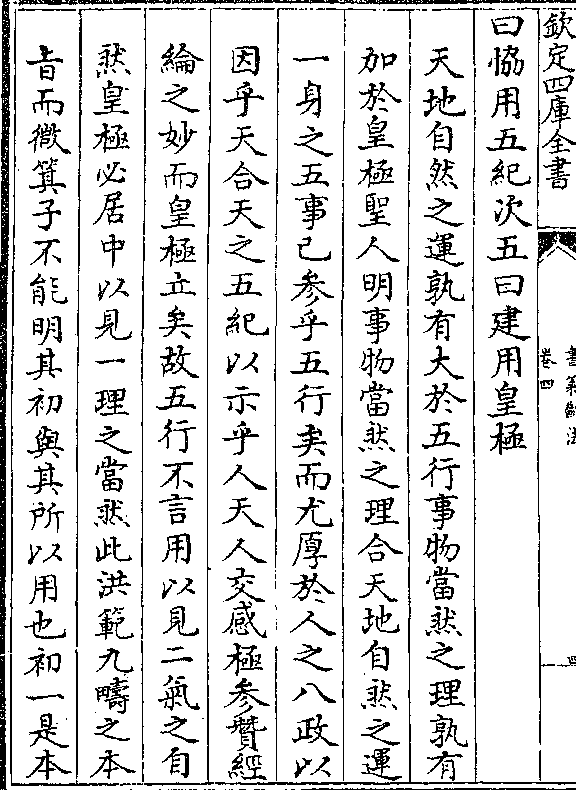 欽定四庫全書
書義斷法
卷四
四
曰協用五紀次五曰建用皇極
天地自然之運孰有大於五行事物當然之理孰有
加於皇極聖人明事物當然之理合天地自然之運
一身之五事已參乎五行矣而尤厚於人之八政以
因乎天合天之五紀以示乎人天人交感極參贊經
綸之妙而皇極立矣故五行不言用以見二氣之自
然皇極必居中以見一理之當然此洪範九疇之本
旨而微箕子不能明其初與其所以用也初一是本